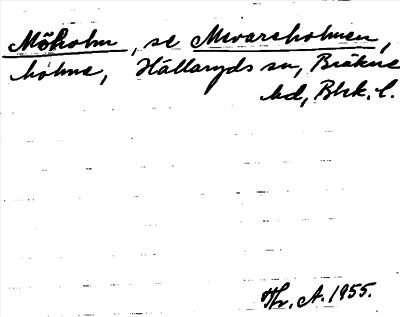 Möholm, se Mevarsholmen,
holme, Hällaryds sn, Bräkne
hd, Blek. l.
Hr. A. 1955.